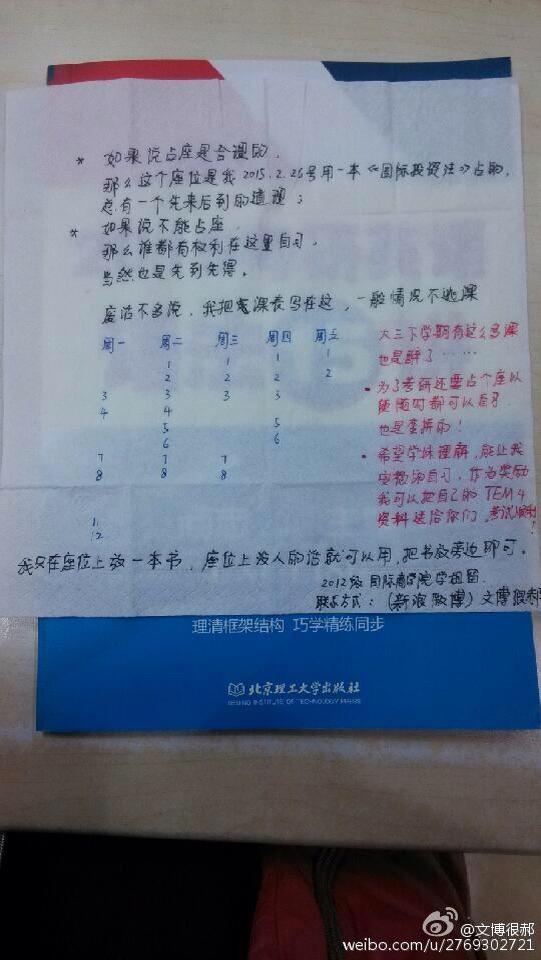 * 如果说占座是合理的，
那么这个座位是我2015.2.26号用一本《国际投资法》占的，
总有一个先来后到的道理；
* 如果说不能占座，
那么谁都有权利在这里自习，
当然也是先到先得。
废话不多说，我把课表写在这，一般情况不逃课
周一 周二 周三 周四 周五
1 1 1 1
2 2 2 2
3 3 3 3
4 4
5 5
6 6
7 7 7
8 8 8
11
12
大三下学期有这么多课
也是醉了……
·为了考研还要占个座以
随时都可以自习
也是蛮拼的！
·希望学妹理解，能让我
安稳的自习，作为奖励
我可以把自己的TEM4
资料送给你们，考试顺利！
我只在座位上放一本书，座位上没人的话就可以用，把书放旁边即可。
2012级国际商学院学姐留
联系方式：（新浪微博）文博很郝
理清框架结构 巧学精练同步
北京理工大学出版社
BEIJING INSTITUTE OF TECHNOLOGY PRESS
@文博很郝
weibo.com/u/2769302721